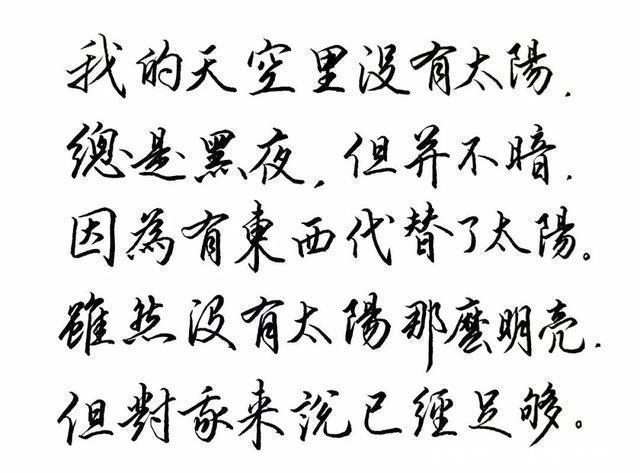 我的天空里没有太陽.
總是黑夜,但并不暗.
因為有東西代替了太陽。
雖然没有太陽那麼明亮.
但對我来說已經足够。